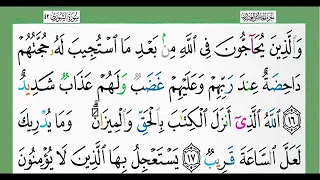 وَالَّذِينَ يُحَاجُّونَ فِي اللَّهِ مِنۢ بَعْدِ مَا اسْتُجِيبَ لَهُۥ حُجَّتُهُمْ
دَاحِضَةٌ عِندَ رَبِّهِمْ وَعَلَيْهِمْ غَضَبٌ وَلَهُمْ عَذَابٌ شَدِيدٌ
﴿١٦﴾ اللَّهُ الَّذِي أَنزَلَ الْكِتَٰبَ بِالْحَقِّ وَالْمِيزَانَ ۗ وَمَا يُدْرِيكَ
لَعَلَّ السَّاعَةَ قَرِيبٌ ﴿١٧﴾ يَسْتَعْجِلُ بِهَا الَّذِينَ لَا يُؤْمِنُونَ